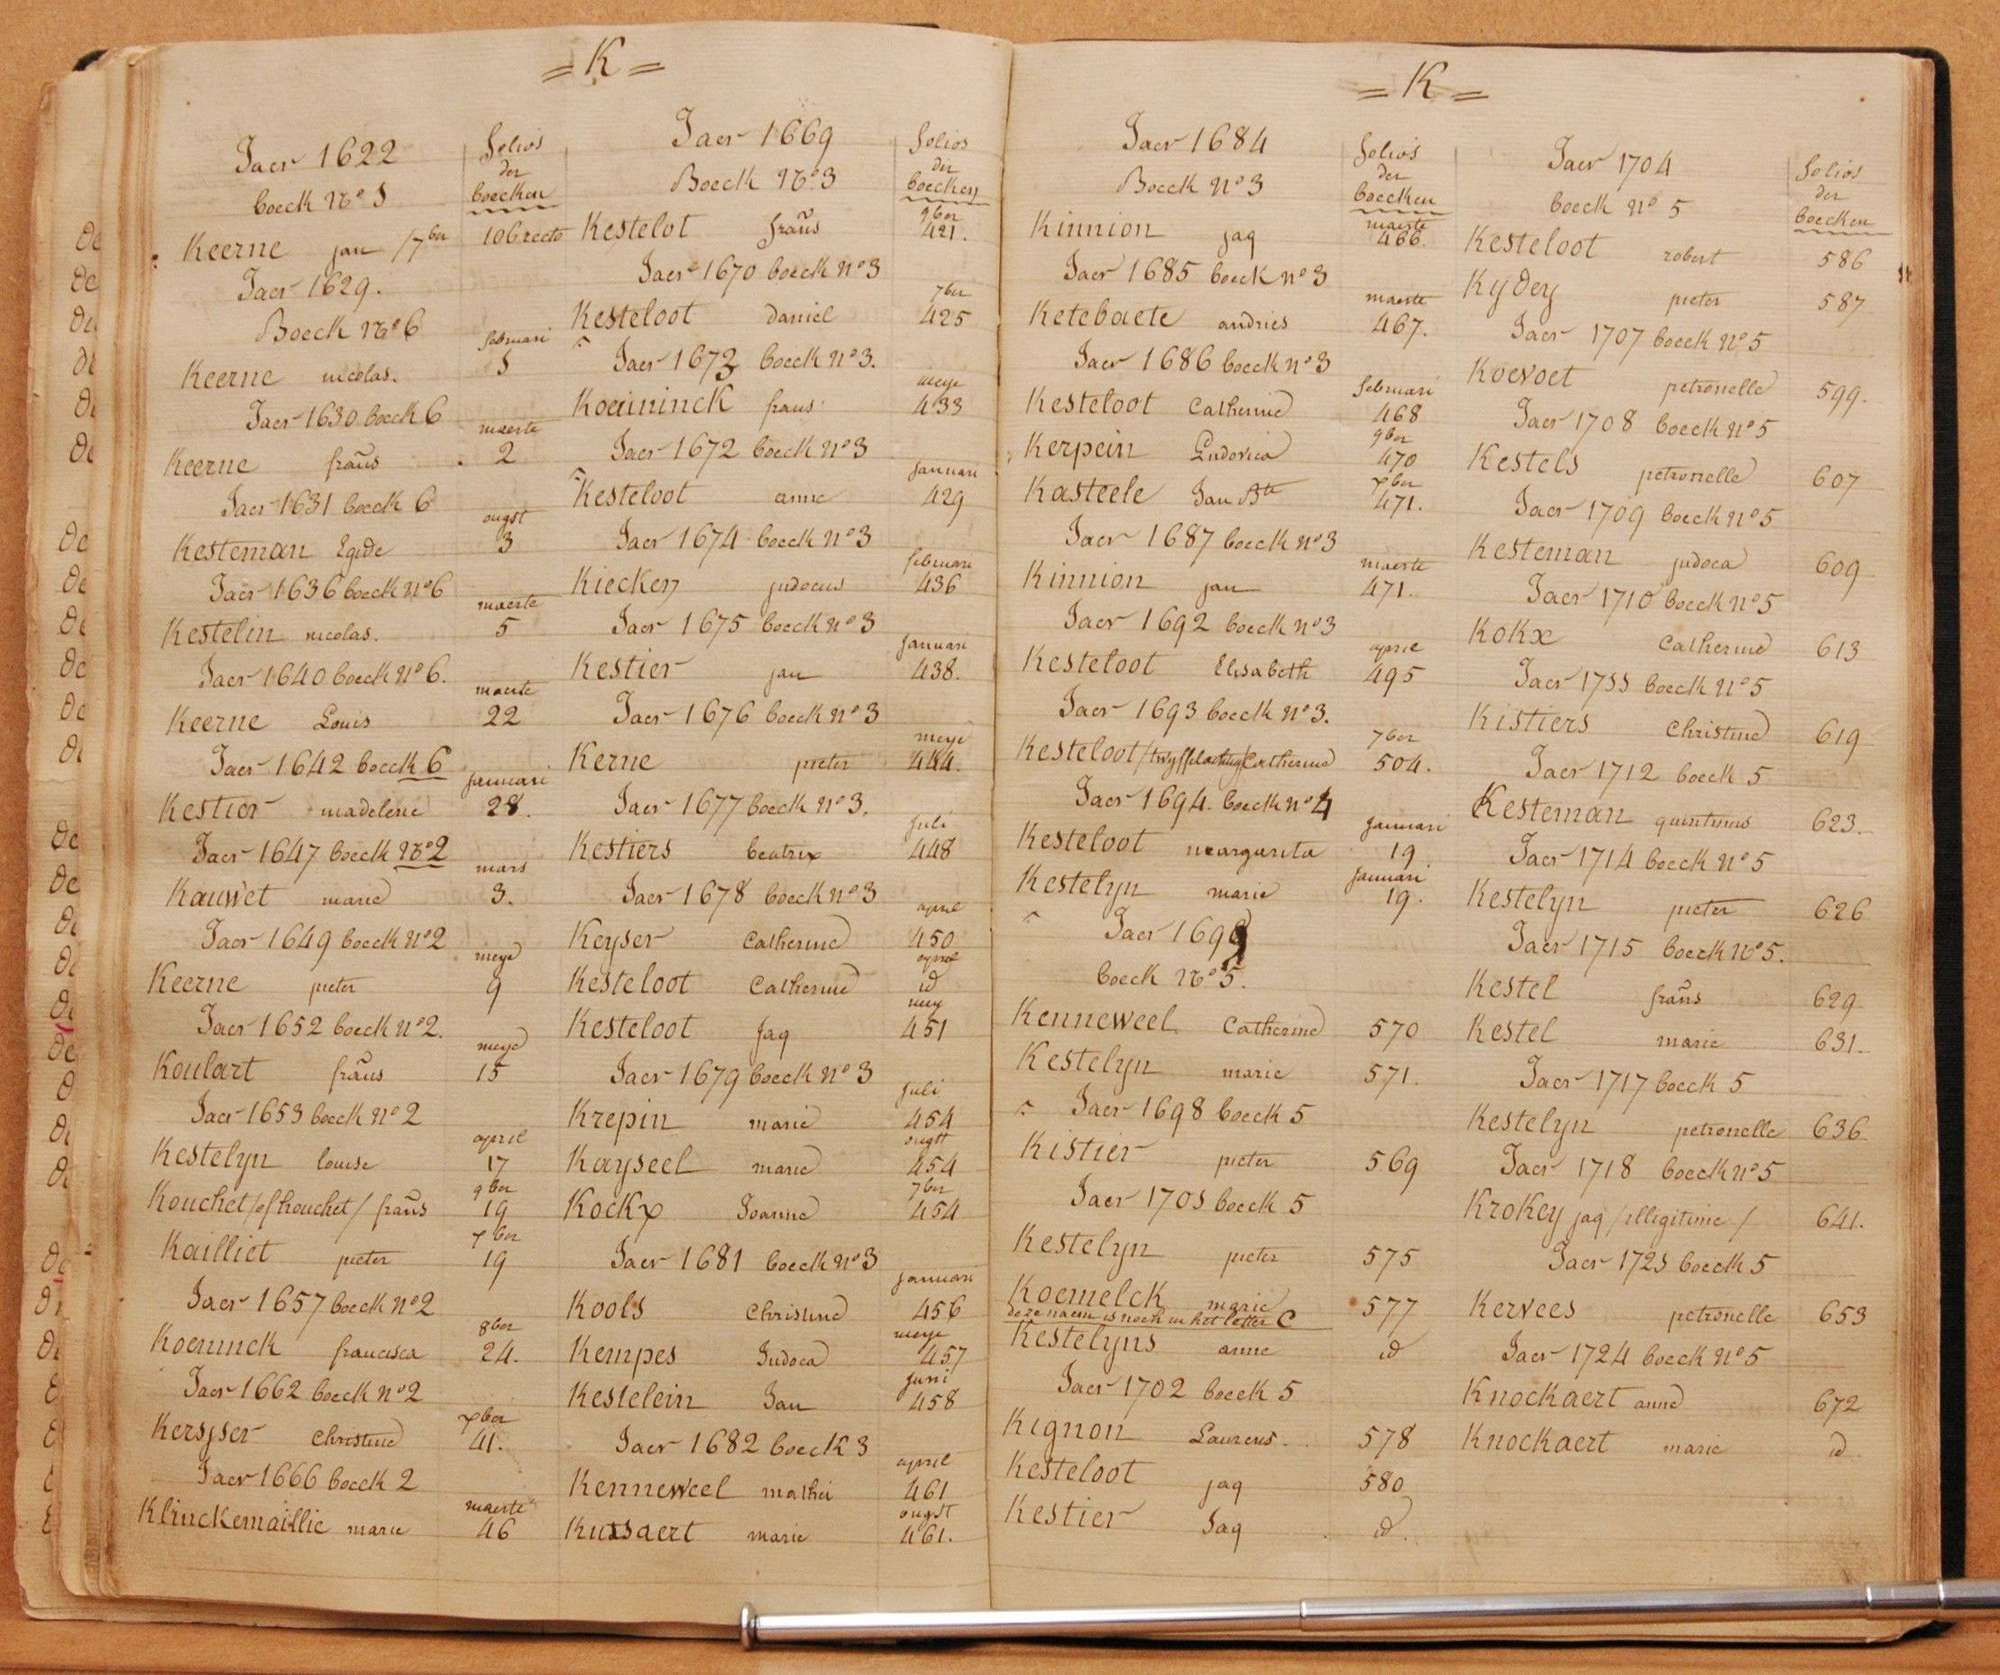 = K =
Jaer 1622
boeck No 1
folios
der
boecken
Keerne jan /7ber 106 recto
Jaer 1629.
Boeck No 6
februari
Keerne nicolas. 1
Jaer 1630 boeck 6
maerte
Keerne frans 2
Jaer 1631 boeck 6
ougst
Kesteman Egide 3
Jaer 1636 boeck No 6
maerte
Kestelin nicolas. 5
Jaer 1640 boeck No 6.
maerte
Keerne Louis 22
Jaer 1642 boeck 6
januari
Kestier madelene 28.
Jaer 1647 boeck No 2
mars
Kauwet marie 3.
Jaer 1649 boeck No 2
meye
Keerne pieter 9
Jaer 1652 boeck No 2.
meye
Koulart frans 15
Jaer 1653 boeck No 2
april
Kestelyn louise 17
9ber
Kouchet /of houchet/ frans 19
xber
Kailliet pieter 19
Jaer 1657 boeck No 2
8ber
Koeninck francisca 24.
Jaer 1662 boeck No 2
xber
Kersyser Christine 41.
Jaer 1666 boeck 2
maerte
Klinckemaillie marie 46
Jaer 1669
Boeck No 3
folios
der
boecken
9ber
Kestelot frans 421.
Jaer 1670 boeck No 3
7ber
Kesteloot daniel 425
Jaer 1673 boeck No 3.
meye
Koeninck frans 433
Jaer 1672 boeck No 3
januari
Kesteloot anne 429
Jaer 1674 boeck No 3
februari
Kiecken judocus 436
Jaer 1675 boeck No 3
januari
Kestier jan 438.
Jaer 1676 boeck No 3
meye
Kerne pieter 444.
Jaer 1677 boeck No 3.
juli
Kestiers beatrix 448
Jaer 1678 boeck No 3
april
Keyser Catherine 450
april
Kesteloot Catherine id
mey
Kesteloot Jaq 451
Jaer 1679 boeck No 3
juli
Krepin marie 454
ougst
Kayseel marie 454
7ber
Kockx Joanne 454
Jaer 1681 boeck No 3
januari
Kools Christine 456
meye
Kempes Judoca 457
juni
Kestelein Jan 458
Jaer 1682 boeck 3
april
Kenneweel mathei 461
ougst
Kussaert marie 461.
= K =
Jaer 1684
Boeck No 3
folios
der
boecken
maerte
Kinnion jaq 466.
Jaer 1685 boeck No 3
maerte
Ketebaete andries 467.
Jaer 1686 boeck No 3
februari
Kesteloot Catherine 468
9ber
Kerpein Ludovica 470
xber
Kasteele Jan Bte 471.
Jaer 1687 boeck No 3
maerte
Kinnion jan 471.
Jaer 1692 boeck No 3
april
Kesteloot Elisabeth 495
Jaer 1693 boeck No 3.
7ber
Kesteloot /twyffelachtig/ Catherine 504.
Jaer 1694. boeck No 4
januari
Kesteloot margarita 19
januari
Kestelyn marie 19.
Jaer 1699
boeck No 5.
Kenneweel Catherine 570
Kestelyn marie 571.
Jaer 1698 boeck 5
Kistier pieter 569
Jaer 1701 boeck 5
Kestelyn pieter 575
Koemelck marie 577
deze naem is noch in het letter C
Kestelyns anne id
Jaer 1702 boeck 5
Kignon Laurens. 578
Kesteloot jaq 580
Kestier Jaq id.
Jaer 1704
boeck No 5
folios
der
boecken
Kesteloot robert 586
Kydey pieter 587
Jaer 1707 boeck No 5
Koevoet petronelle 599.
Jaer 1708 boeck No 5
Kestels petronelle 607
Jaer 1709 boeck No 5
Kesteman judoca 609
Jaer 1710 boeck No 5
Kokx Catherine 613
Jaer 1711 boeck No 5
Kistiers Christine 619
Jaer 1712 boeck 5
Kesteman quintinus 623.
Jaer 1714 boeck No 5
Kestelyn pieter 626
Jaer 1715 boeck No 5.
Kestel frans 629
Kestel marie 631.
Jaer 1717 boeck 5
Kestelyn petronelle 636
Jaer 1718 boeck No 5
Krokey jaq /illegitime/ 641.
Jaer 1721 boeck 5
Kervees petronelle 653
Jaer 1724 boeck No 5
Knockaert anne 672
Knockaert marie id